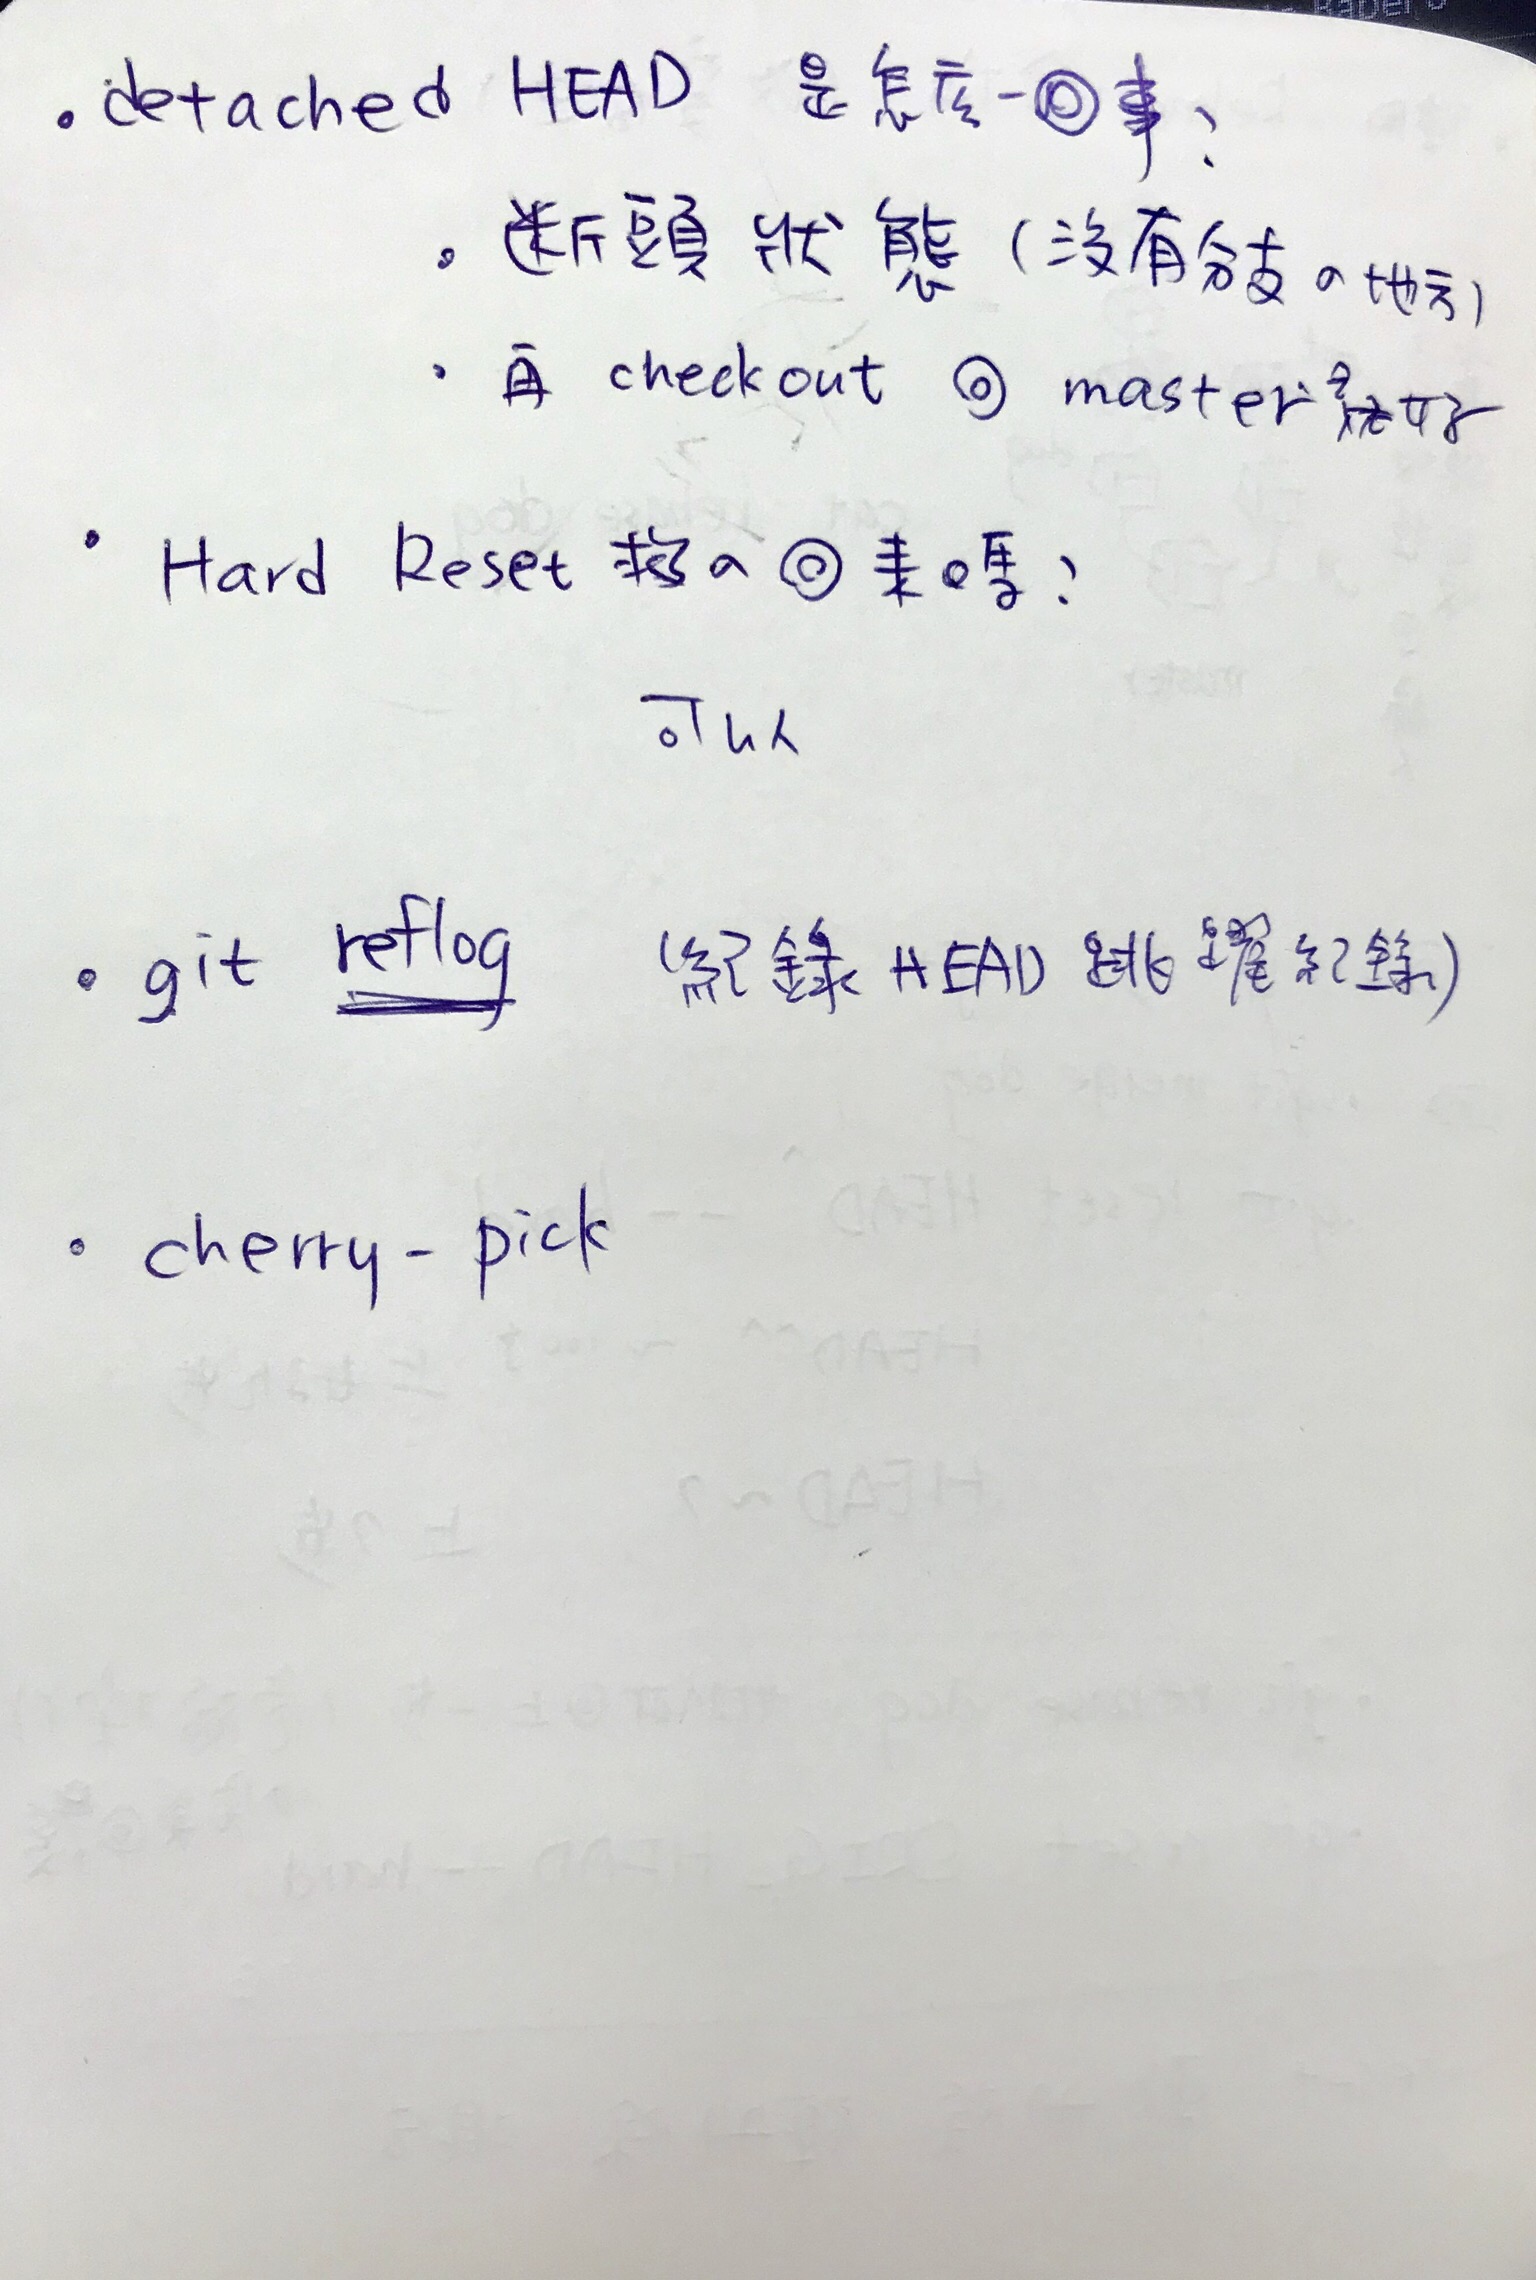 • detached HEAD 是怎麼一回事?
• 断頭狀態(沒有分支の地方)
• 再 checkout 回 master 就好
• Hard Reset 救の回來嗎?
可以
• git reflog (紀錄 HEAD 跳躍紀錄)
• cherry-pick